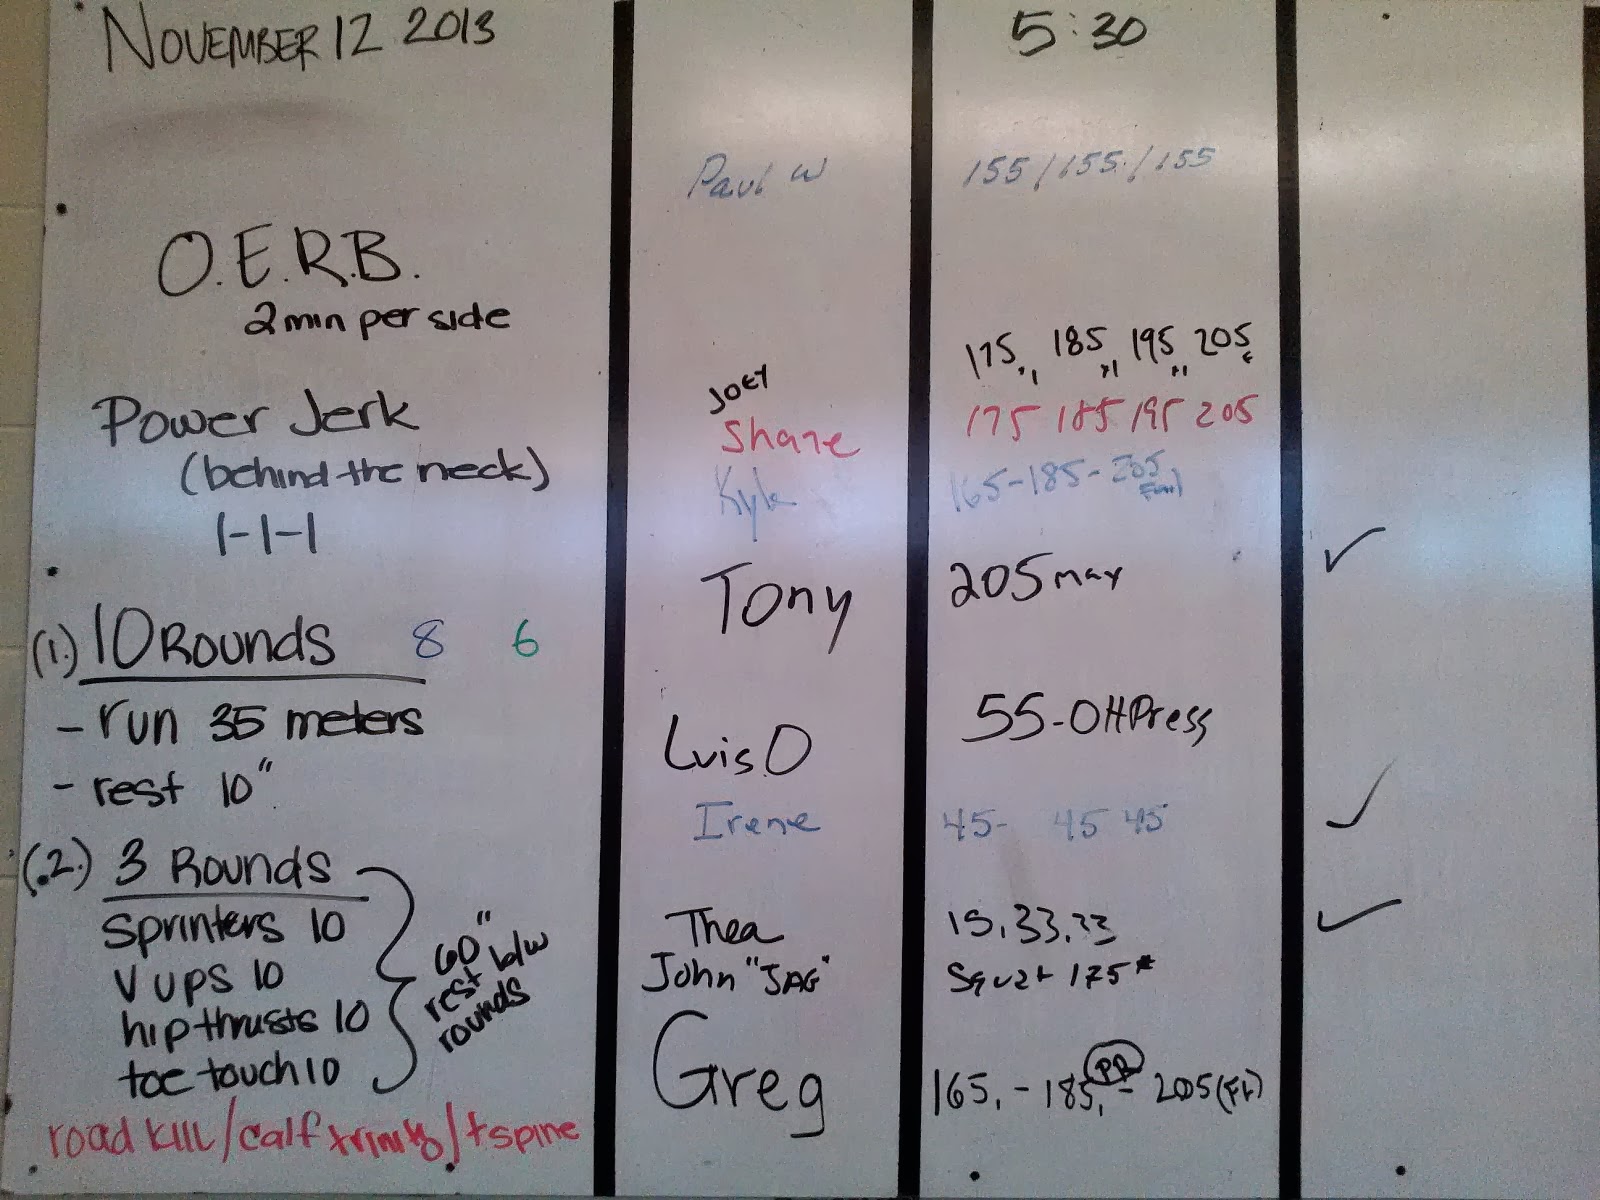 NOVEMBER 12 2013
O.E.R.B.
2min per side
Power Jerk
(behind the neck)
1-1-1
(1.) 10 Rounds 8 6
- run 35 meters
- rest 10"
(2.) 3 Rounds
Sprinters 10
V ups 10
hip thrusts 10
toe touch 10
60"
rest b/w
rounds
road kill/calf trinity/tspine
5:30
Paul W 155/155/155
Joey 175, 185, 195, 205
Shane 175 185 195 205
Kyle 165-185-205
Fail
Tony 205 max ✓
Luis O 55-OHPress
Irene 45- 45 45 ✓
Thea 15,33,33 ✓
John "JAG" Squat 175*
Greg 165,-185,- 205(FL)
PR